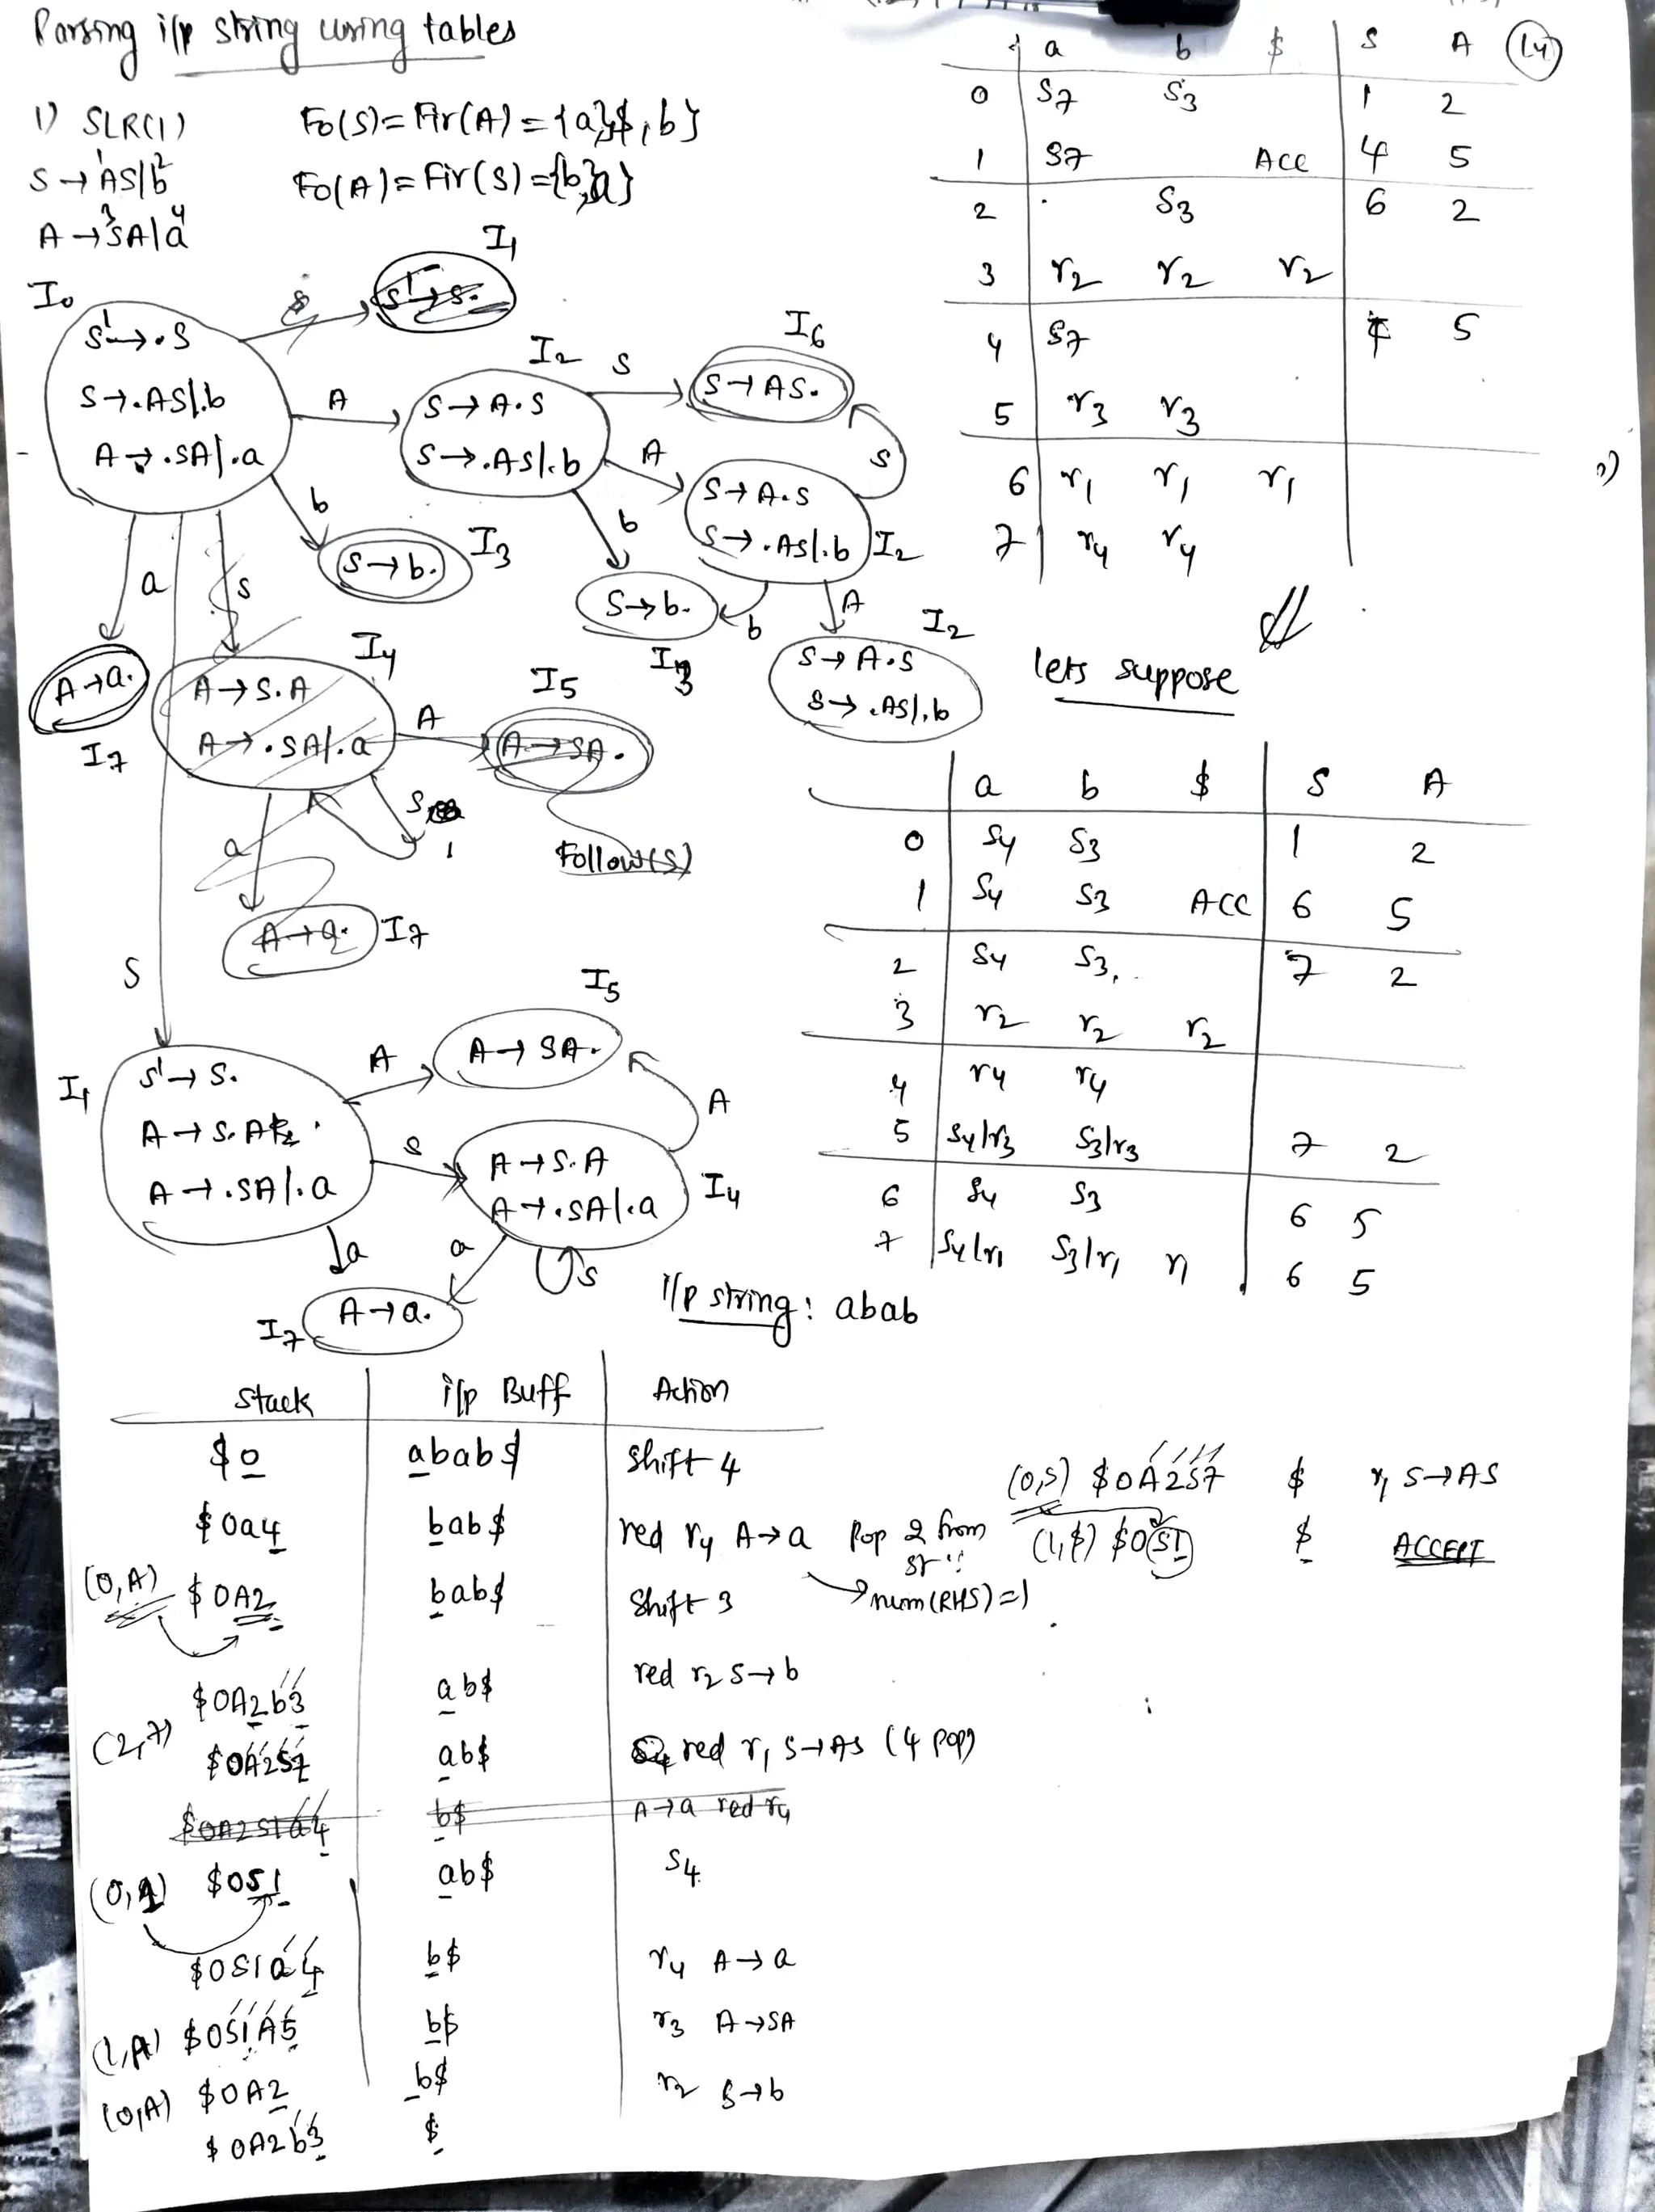 Parsing i/p string using tables
1) SLR(1)
Fo(S)= Fir(A) = {a},$,b}
S → AS|b
1 2
Fo(A) = Fir(S) = {b,a}
A → SA|a
3 4
14
a b $ S A
0 S7 S3 1 2
1 S7 Acc 4 5
2 S3 6 2
3 r2 r2 r2
4 S7 5
5 r3 r3
6 r1 r1 r1
7 r4 r4
I0
S' → .S
S → .AS|.b
A → .SA|.a
I1
S' → S.
A
I2
S → A.S
S → .AS|.b
S
I6
S → AS.
b
I3
S → b.
A
S → A.S
S → .AS|.b
I2
S
b
S → b.
I3
b
A
I2
S → A.S
S → .AS|.b
a
A → a.
I7
S
I4
A → S.A
A → .SA|.a
A
I5
A → SA.
S
Follow(S)
a
A → a.
I7
S
I1
S' → S.
A → S.A
A → .SA|.a
A
I5
A → SA.
S
A → S.A
A → .SA|.a
I4
A
a
a
S
I7
A → a.
lets suppose
a b $ S A
0 S4 S3 1 2
1 S4 S3 ACC 6 5
2 S4 S3 7 2
3 r2 r2 r2
4 r4 r4
5 S4/r3 S3/r3 7 2
6 S4 S3 6 5
7 S4/r1 S3/r1 r1 6 5
i/p string: abab
Stack i/p Buff Action
$0 abab$ shift 4
$0a4 bab$ red r4 A → a Pop 2 from st
num(RHS)=1
(0,A) $0A2 bab$ Shift 3
$0A2b3 ab$ red r2 S → b
(2,7) $0A2S7 ab$ red r1 S → AS (4 pop)
$0A2S1a4 b$ A → a red r4
(0,1) $0S1 ab$ S4
$0S1a4 b$ r4 A → a
(1,A) $0S1A5 b$ r3 A → SA
(0,A) $0A2 b$ r2 S → b
$0A2b3 $
(0,S) $0A2S7 $ r1 S → AS
(1,$) $0S1 $ ACCEPT